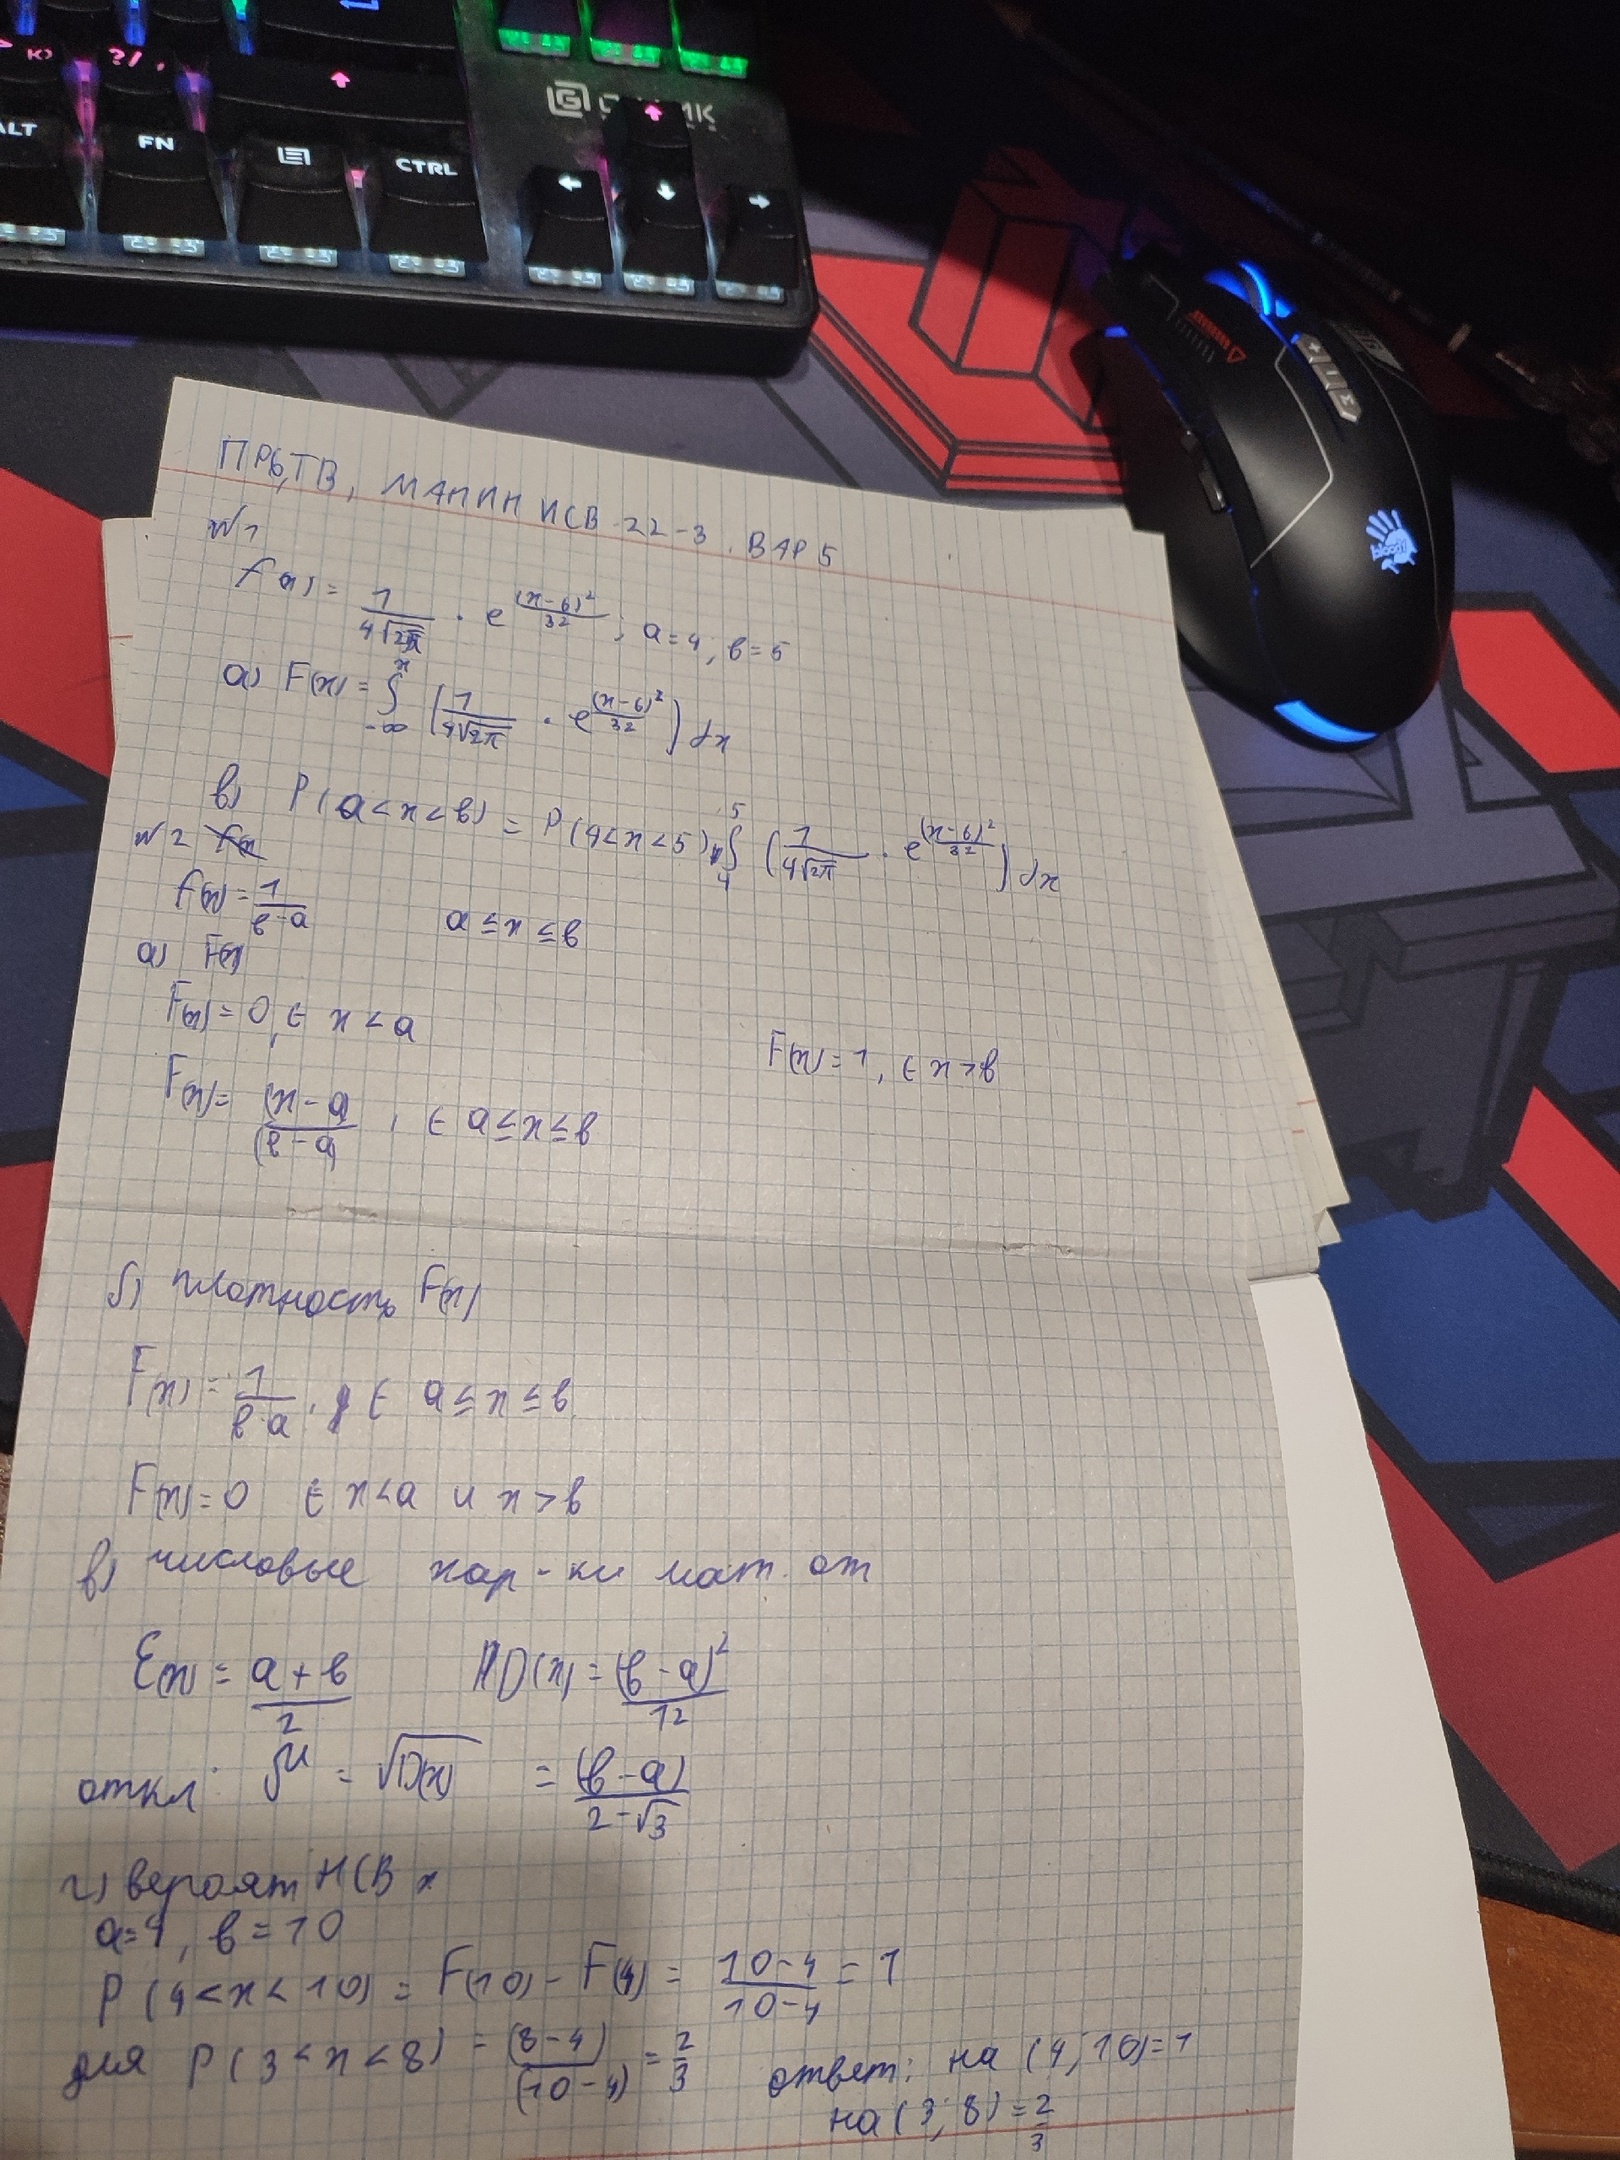 К> ?/ ,
ALT FN CTRL
bloody
ПР6, ТВ, МАПИН ИСВ-22-3. ВАР 5
№1
f(x) = 1/(4√2π) · e^((x-6)²/32); a=4, b=5
а) F(x) = ∫_{-∞}^{x} (1/(4√2π) · e^((x-6)²/32)) dx
в) P(a<x<b) = P(4<x<5) ∫_4^5 (1/(4√2π) · e^((x-6)²/32)) dx
№2
f(x) = 1/(b-a) a≤x≤b
а) F(x)
F(x) = 0, ∈ x<a F(x) = 1, ∈ x>b
F(x) = (x-a)/(b-a), ∈ a≤x≤b
б) плотность F(x)
F(x) = 1/(b-a), ∈ a≤x≤b
F(x) = 0 ∈ x<a и x>b
в) числовые хар-ки мат. от
E(x) = (a+b)/2 D(x) = (b-a)²/12
откл. = √D(x) = (b-a)/(2-√3)
г) вероят НСВ x
a=4, b=10
P(4<x<10) = F(10) - F(4) = (10-4)/(10-4) = 1
для P(3<x<8) = (8-4)/(10-4) = 2/3 ответ: на (4; 10) = 1
на (3; 8) = 2/3